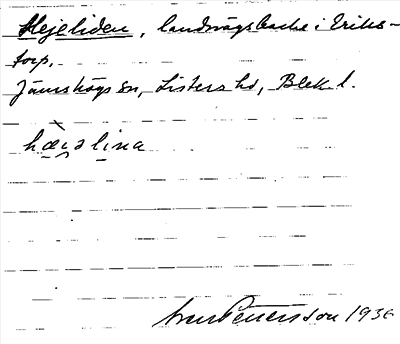 Hejeliden, landsvägsbacke i Eriks-
torp,
Jämshögs sn, Listers hd, Blek. l.
hæi̯əlina
Pettersson 1936